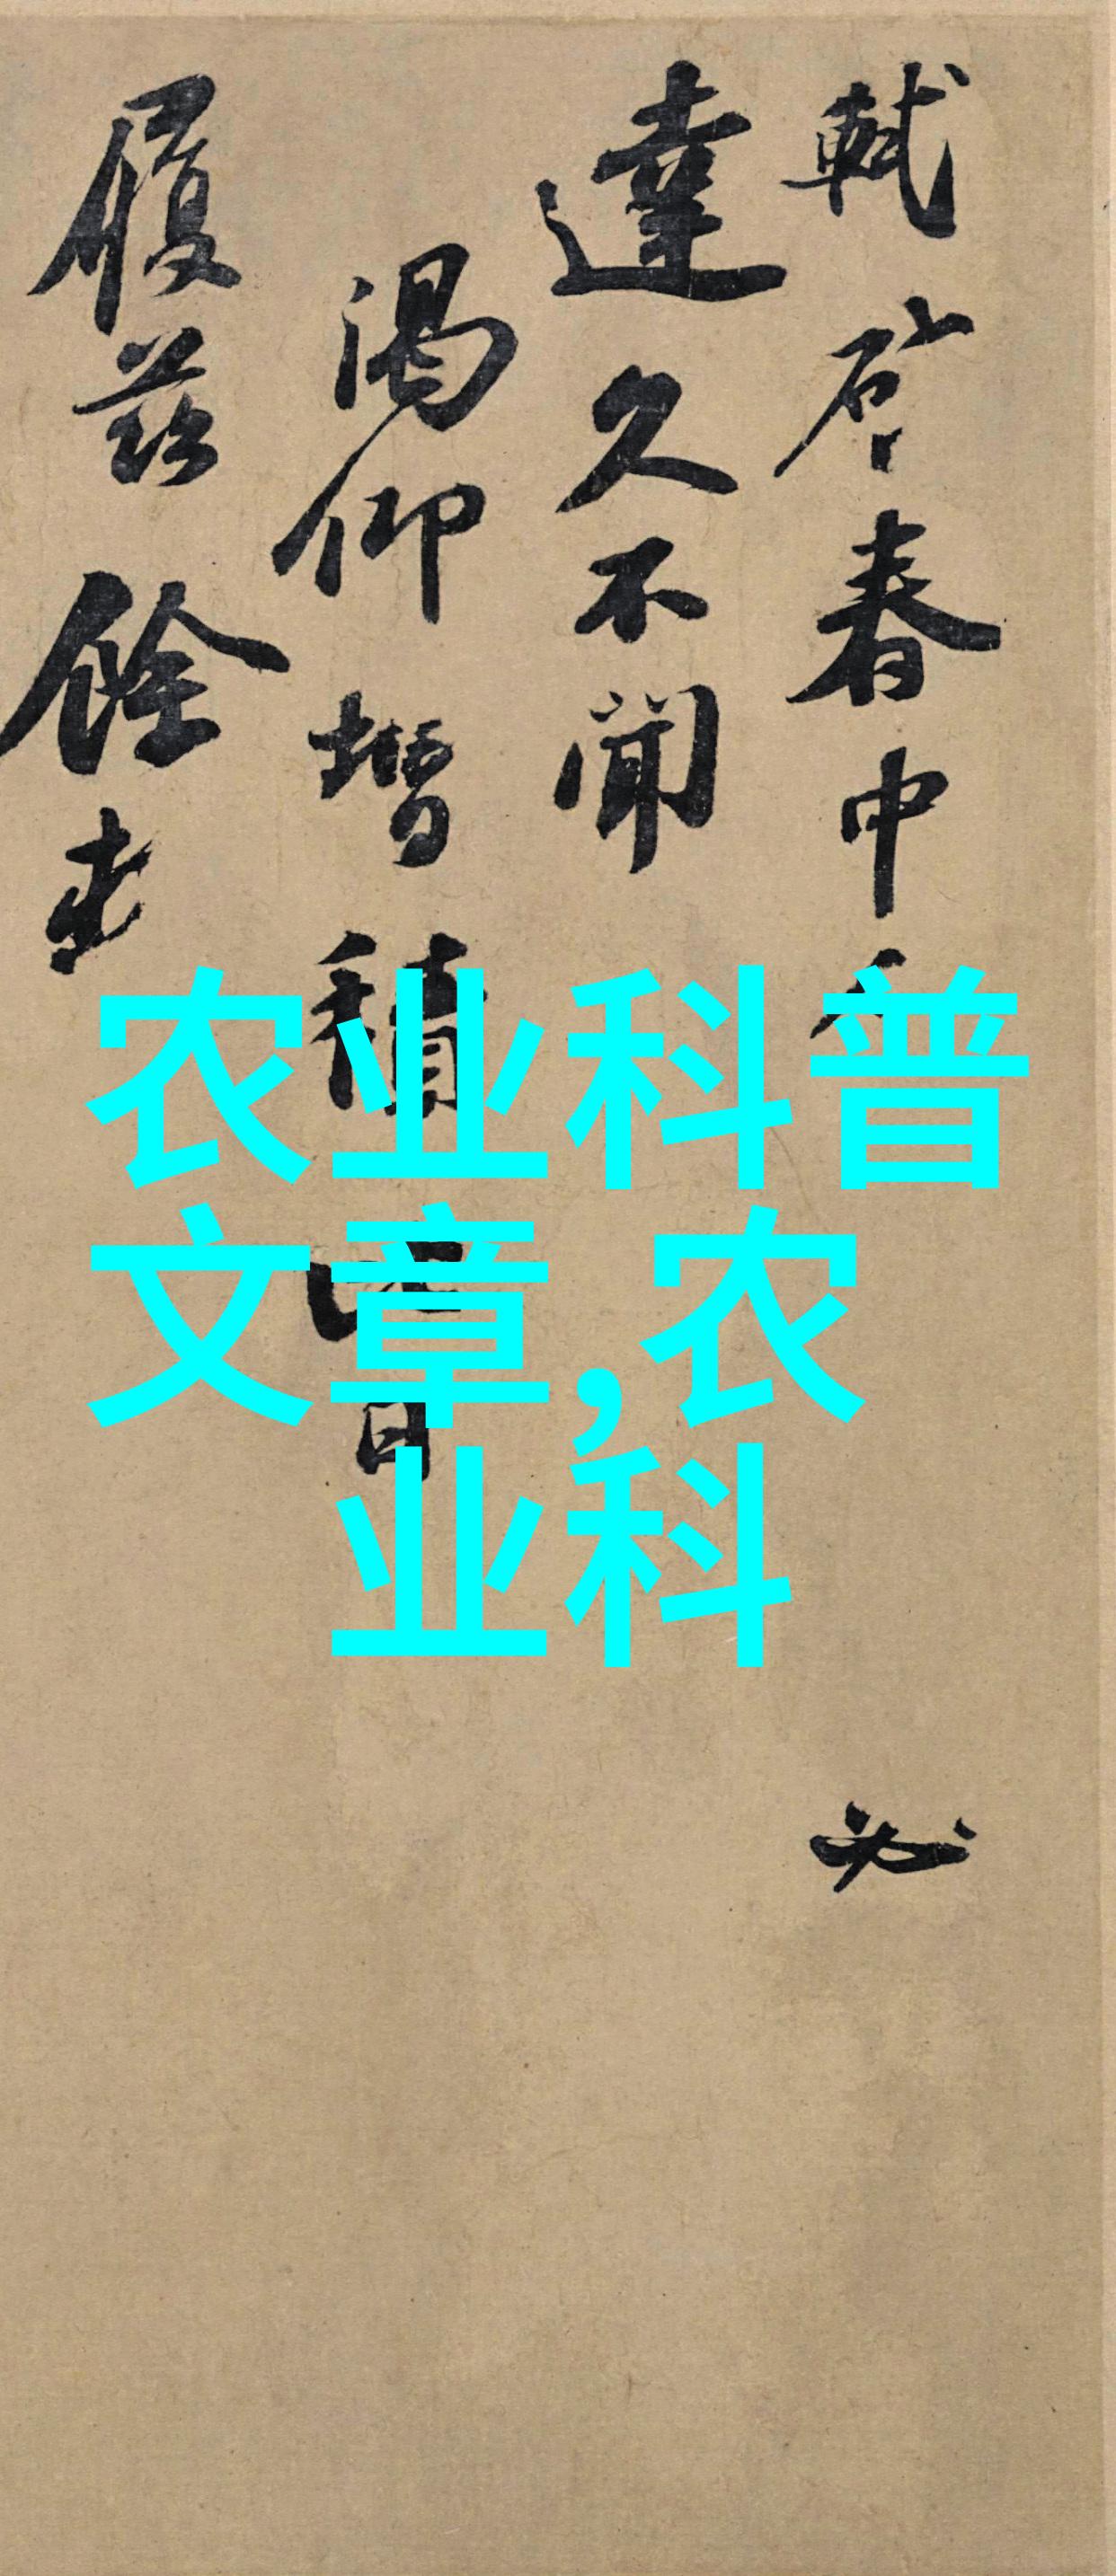 軾啓春中
必
達久不聞
渴仰增積
日
履兹餘
农业科普
文章,农
业科